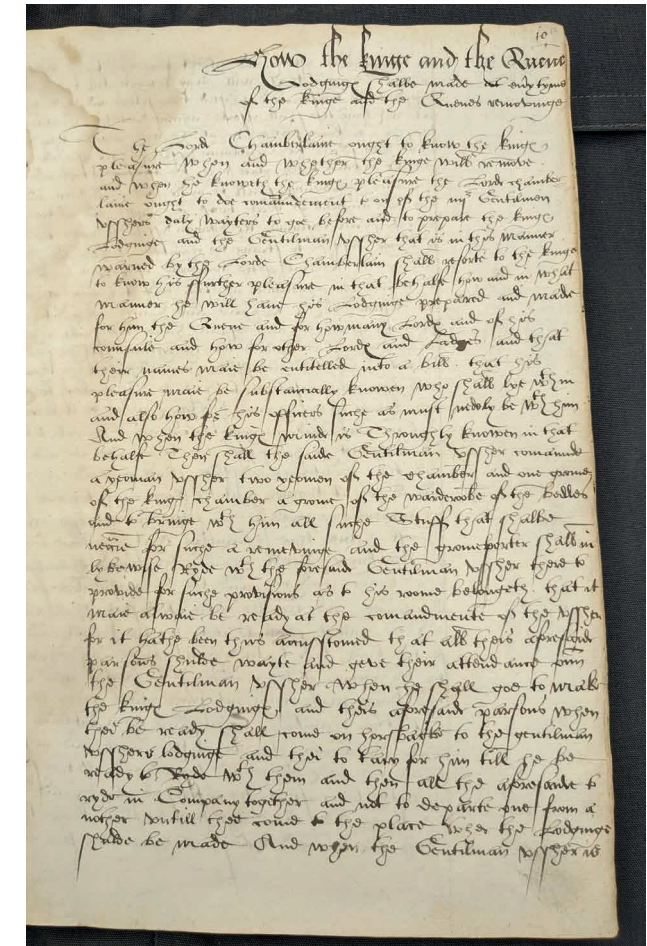 10
How the kinge and the Quene
Lodginge shalbe made at every tyme
of the kinge and the Quenes removinge
The Lord Chamberlaine ought to know the kinge
pleasure when and whether the kinge will remove
and when he knoweth the kinge pleasure the Lorde chamber
laine ought to doe comaundement to on of the Gentilmen
vsshers daly wayters to goe before and to prepare the kinge
Lodginge and the Gentilman vssher that is in this manner
warned by the Lorde Chamberlain shall resorte to the kinge
to know his ffurther pleasure in that behalfe how and in what
manner he will have his Lodginge prepared and made
for him the Quene and for how many Lordes and of his
counsaile and how for other Lordes and Ladyes and that
their names maie be entitelled into a bill that his
pleasure maie be substancially knowen who shall lye wth in
and also how his officers suche as must nedely be wth him
And when the kinge minde is Throughly knowen in that
behalfe Then shall the saide Gentilman vssher comaunde
a yeoman vssher two yeomen of the chamber and one grome
of the kinge chamber a grome of the wardrobe of the beddes
and to bringe wth him all suche Stuff that shalbe
for suche a removinge and the gromeporter shall in
lykewise Ryde wth the foresaid Gentilman vssher there to
provide for suche provisions as to his rome belongeth that it
maie alwaie be ready at the comandmente of the vssher
for it hathe been thus accustomed that all theis aforesaide
parsons shulde wayte and geve their attendance vpon
the Gentilman vssher when he shall goe to make
the kinge Lodginge and theis aforesaide parsons when
thei be ready shall come on horsbacke to the gentilman
vsshers lodginge and thei to tary for him till he be
ready to Ryde wth them and then all the aforesaide to
ryde in Company together and not to departe one from a
nother vntill thei come to the place wher the Lodginge
shulde be made And when the Gentilman vssher is